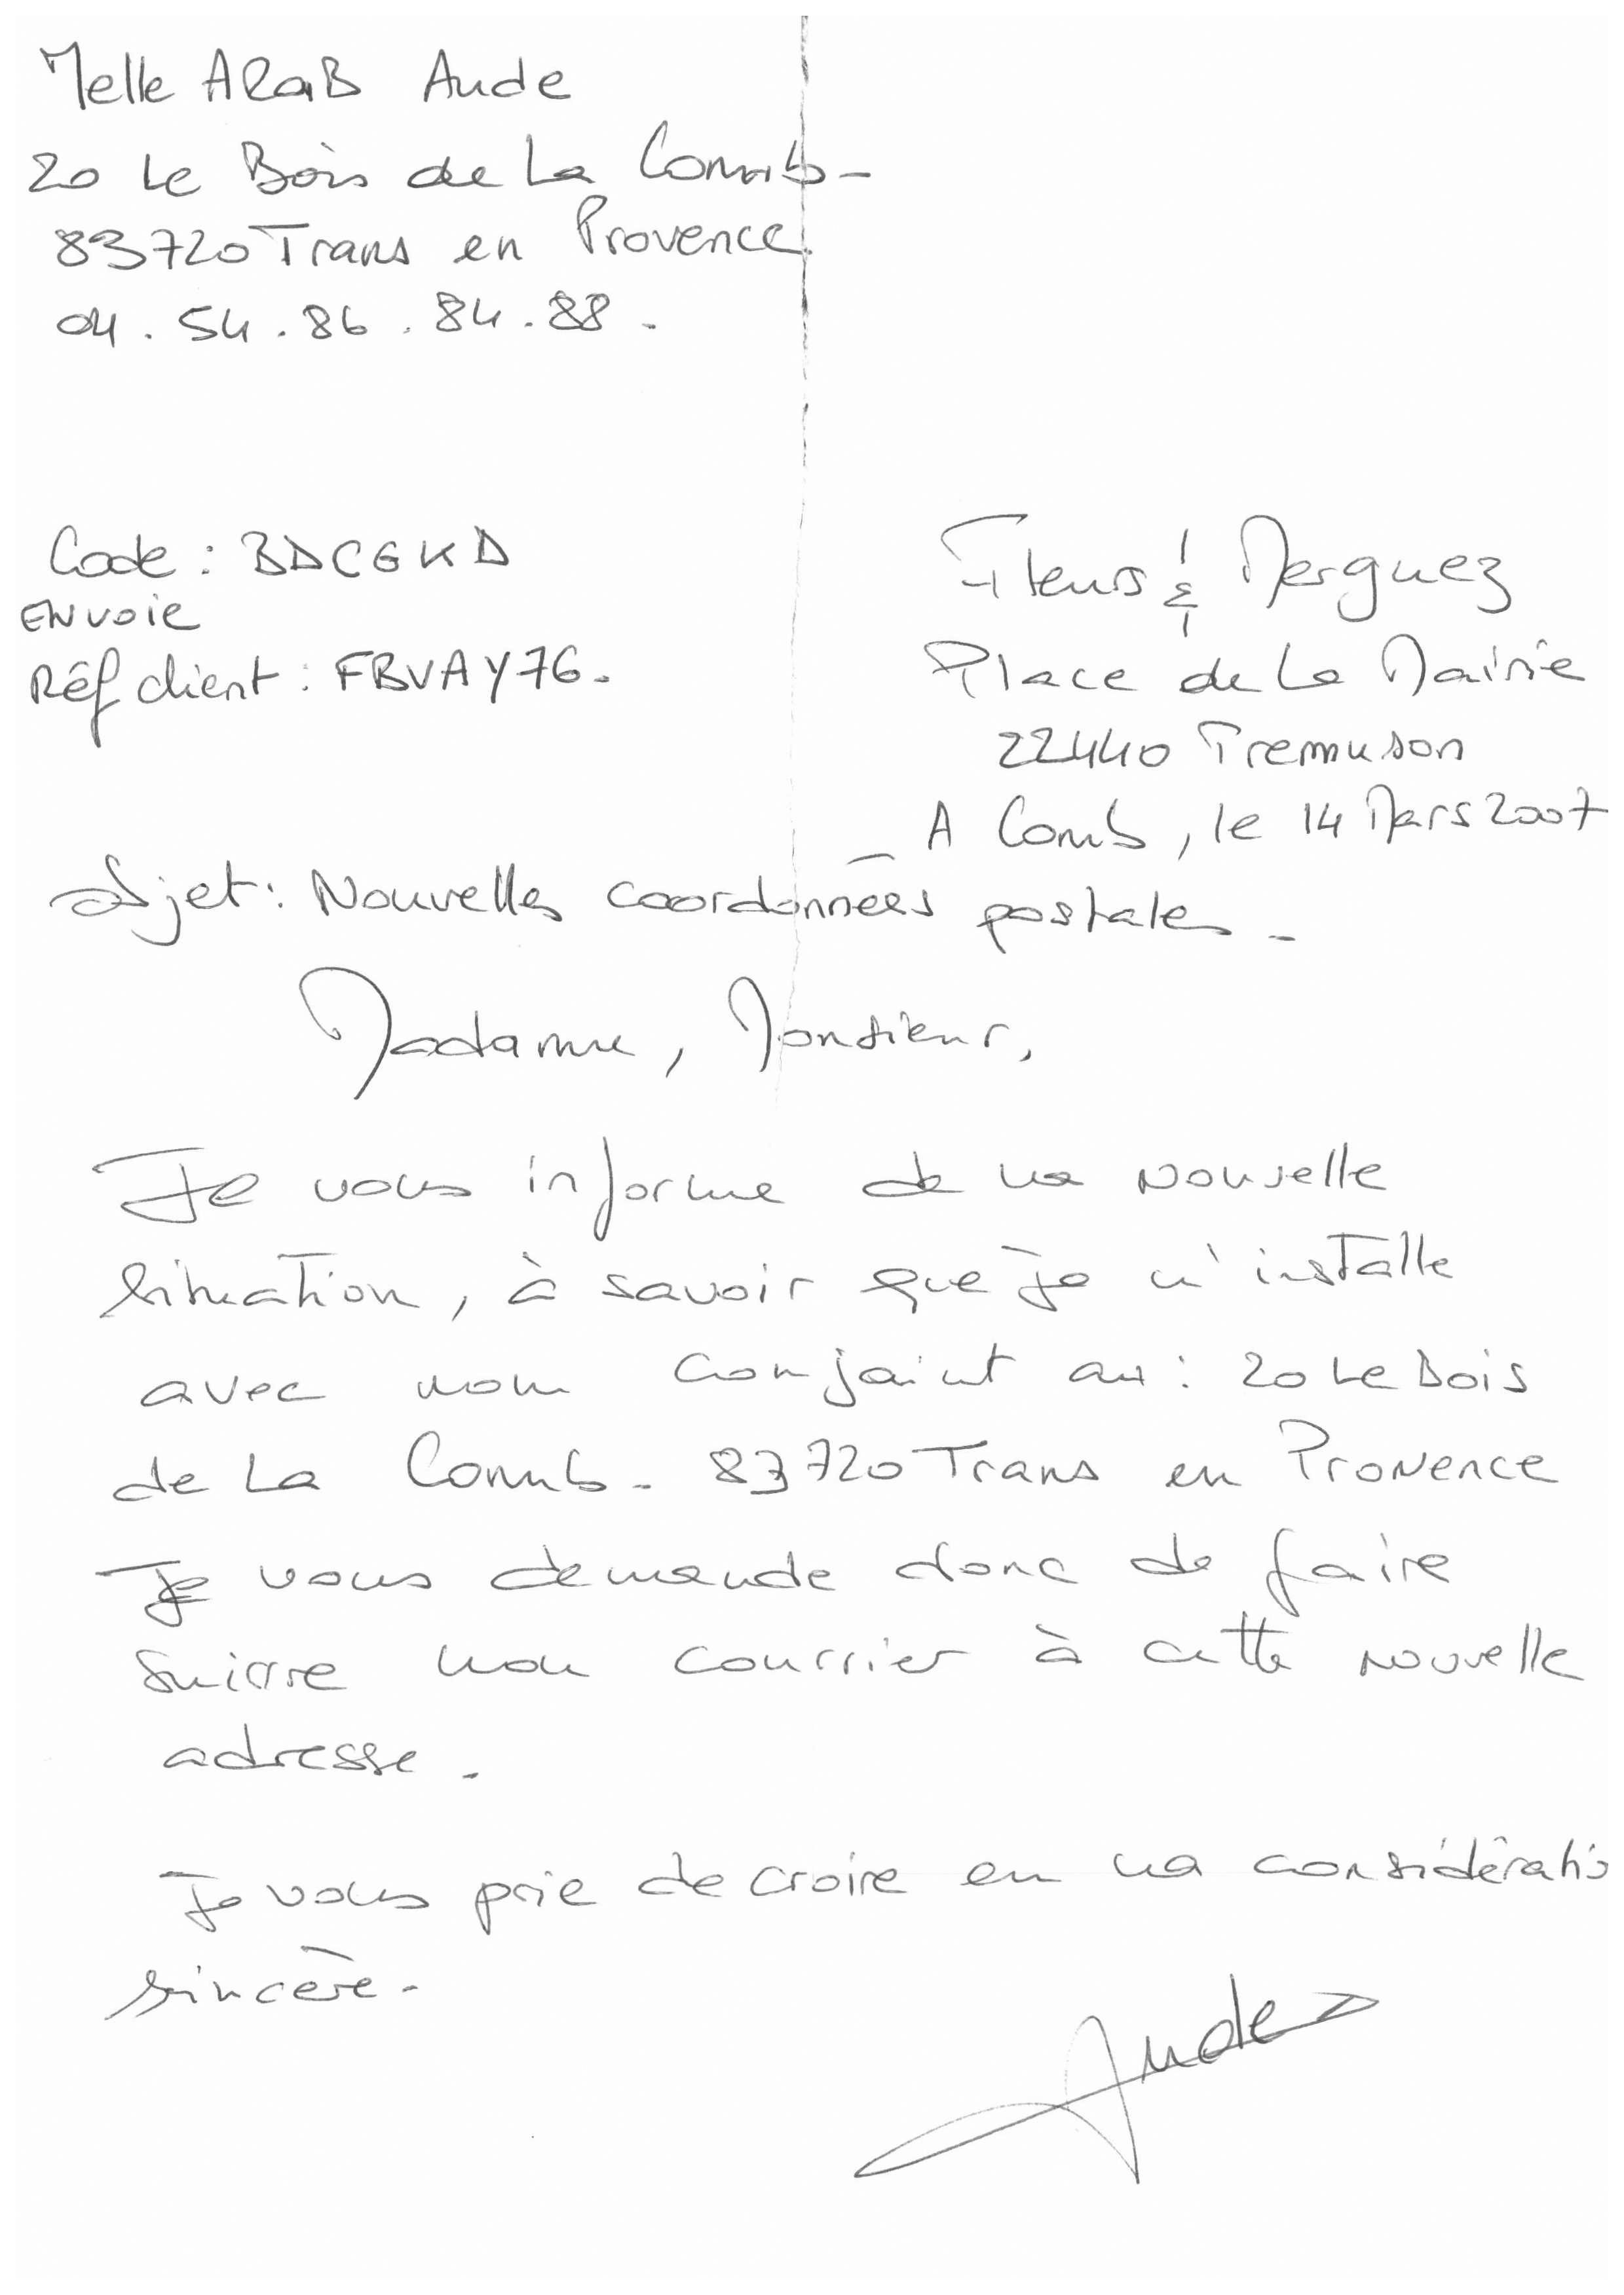 Melle ARaB Aude
20 Le Bois de La Comb -
83720 Trans en Provence
04 . 54 . 86 . 84 . 88 .
Code : BDCGKD
ENVOIE
Réf client : FBVAY76 .
Fleurs & Merguez
Place de La Mairie
22440 Tremuson
A Comb, le 14 Mars 2007
Objet : Nouvelles coordonnées postales _
Madame, Monsieur,
Je vous informe de ma nouvelle
situation, à savoir que je m'installe
avec mon conjoint au : 20 Le Bois
de La Comb - 83720 Trans en Provence
Je vous demande donc de faire
suivre mon courrier à cette nouvelle
adresse .
Je vous prie de croire en ma considératio
sincère .
Aude